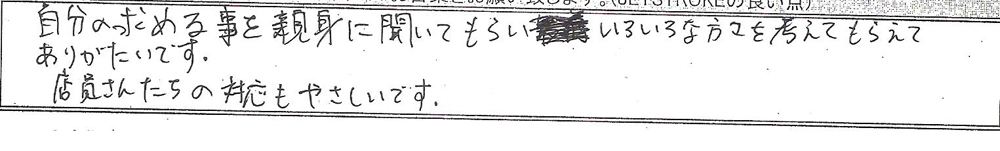 (JETSTROKEの良い点)
自分の求める事を親身に聞いてもらい いろいろな方さを考えてもらえて
ありがたいです.
店員さんたちの対応もやさしいです.